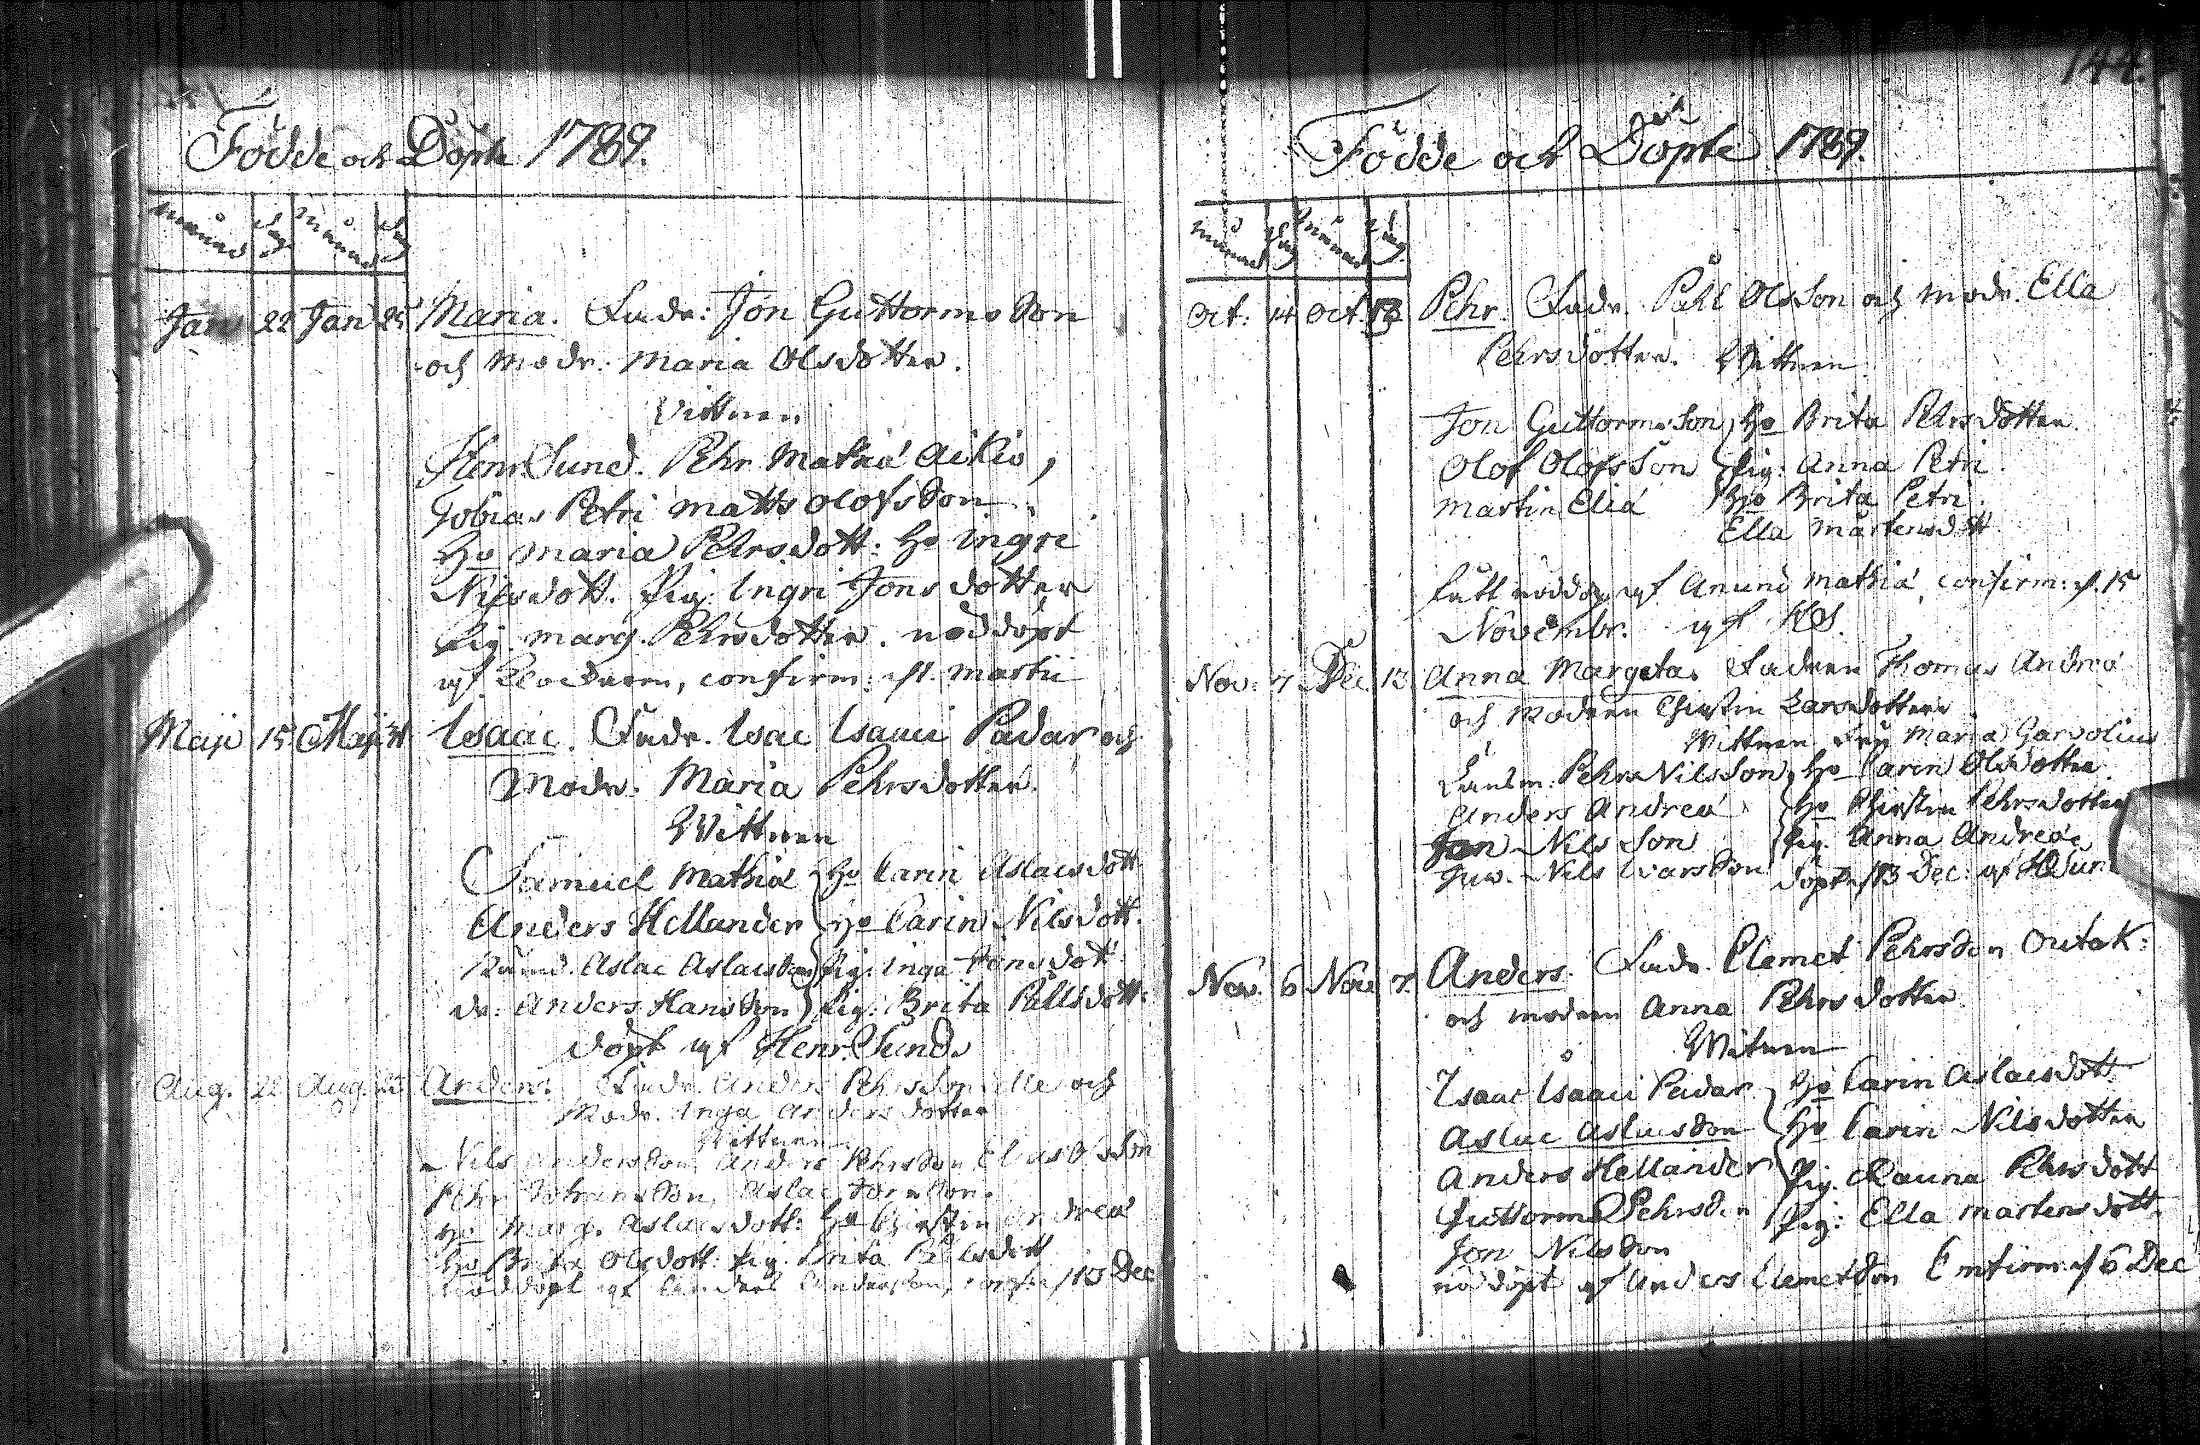 144.
Födde och Döpte 1789.
Månad Dag Månad Dag
Jan 22 Jan 25 Maria. Fadr: Jon Guttormsson
och Modr. Maria Olsdotter.
Vittnen
Henr Sund. Pehr Mathiæ Aikio,
Tobias Petri Matts Olofsson
Ho Maria Pehrsdott: Ho Ingri
Nilsdott. Pig. Ingri Jonsdotter
Pig. Marg. Pehrsdotter. nöddöpt
af Klockaren, confirm: Martii
Maji 15 Maji 31 Isaac. Fadr. Isac Isaaci Padar och
Modr. Maria Pehrsdotter.
Wittnen
Samuel Mathiæ Ho Carin Aslacsdott
Anders Hellander Ho Carin Nilsdott.
Aslac Aslacsson Pig. Inga Jonsdott
dr: Anders Hansson Pig: Brita Pållsdott:
döpt af Henr. Sund.
Aug. 22 Aug. Anders. Fadr. Anders Pehrsson och
Modr. Inga Andersdotter
Wittnen
Nils Andersson, Anders Pehrsson Olsson
Pehr Johansson, Aslac Jonsson.
Ho Marg. Aslacsdott: Ho Chirstin Andreæ
Ho Brita Olsdott: Pig. Brita Pålsdott
nöddöpt af Andersson, 13 Dec
Födde och Döpte 1789.
Månad Dag Månad Dag
Oct: 14 Oct. Pehr. Fadr. Påhl Olsson och Modr. Ella
Pehrsdotter. Wittnen
Jon Guttormsson Ho Brita Pehrsdotter.
Olof Olofsson Pig: Anna Petri
Martin Eliæ Ho Brita Petri
Ella Mårtensdott
af Anund Mathiæ, confirm: d. 15
Novembr. af HS.
Nov: 7 Dec 13 Anna Margeta. Fadren Thomas Andreæ
och Modren Chirstin Larsdotter
Wittnen Fru Maria Garvolius
Länsm: Pehr Nilsson Ho Carin Olsdotter.
Anders Andreæ Ho Chirstin Pehrsdotter
Jon Nilsson Pig. Anna Andreæ
Nils Ivarsson döpt d 13 Dec: af
Nov. 6 Nov 7. Anders. Fadr. Clemet Pehrsson Outak:
och modren Anna Pehrsdotter
Witnen
Isaac Isaaci Padar Ho Carin Aslacsdott.
Aslac Aslacsson Ho Carin Nilsdotter
Anders Hellander Pig. Rauna Pehrsdott
Guttorm Pehrsson Pig: Ella Martensdott.
Jon Nilsson
nödöpt af Anders Clemetsson Confirm d 6 Dec